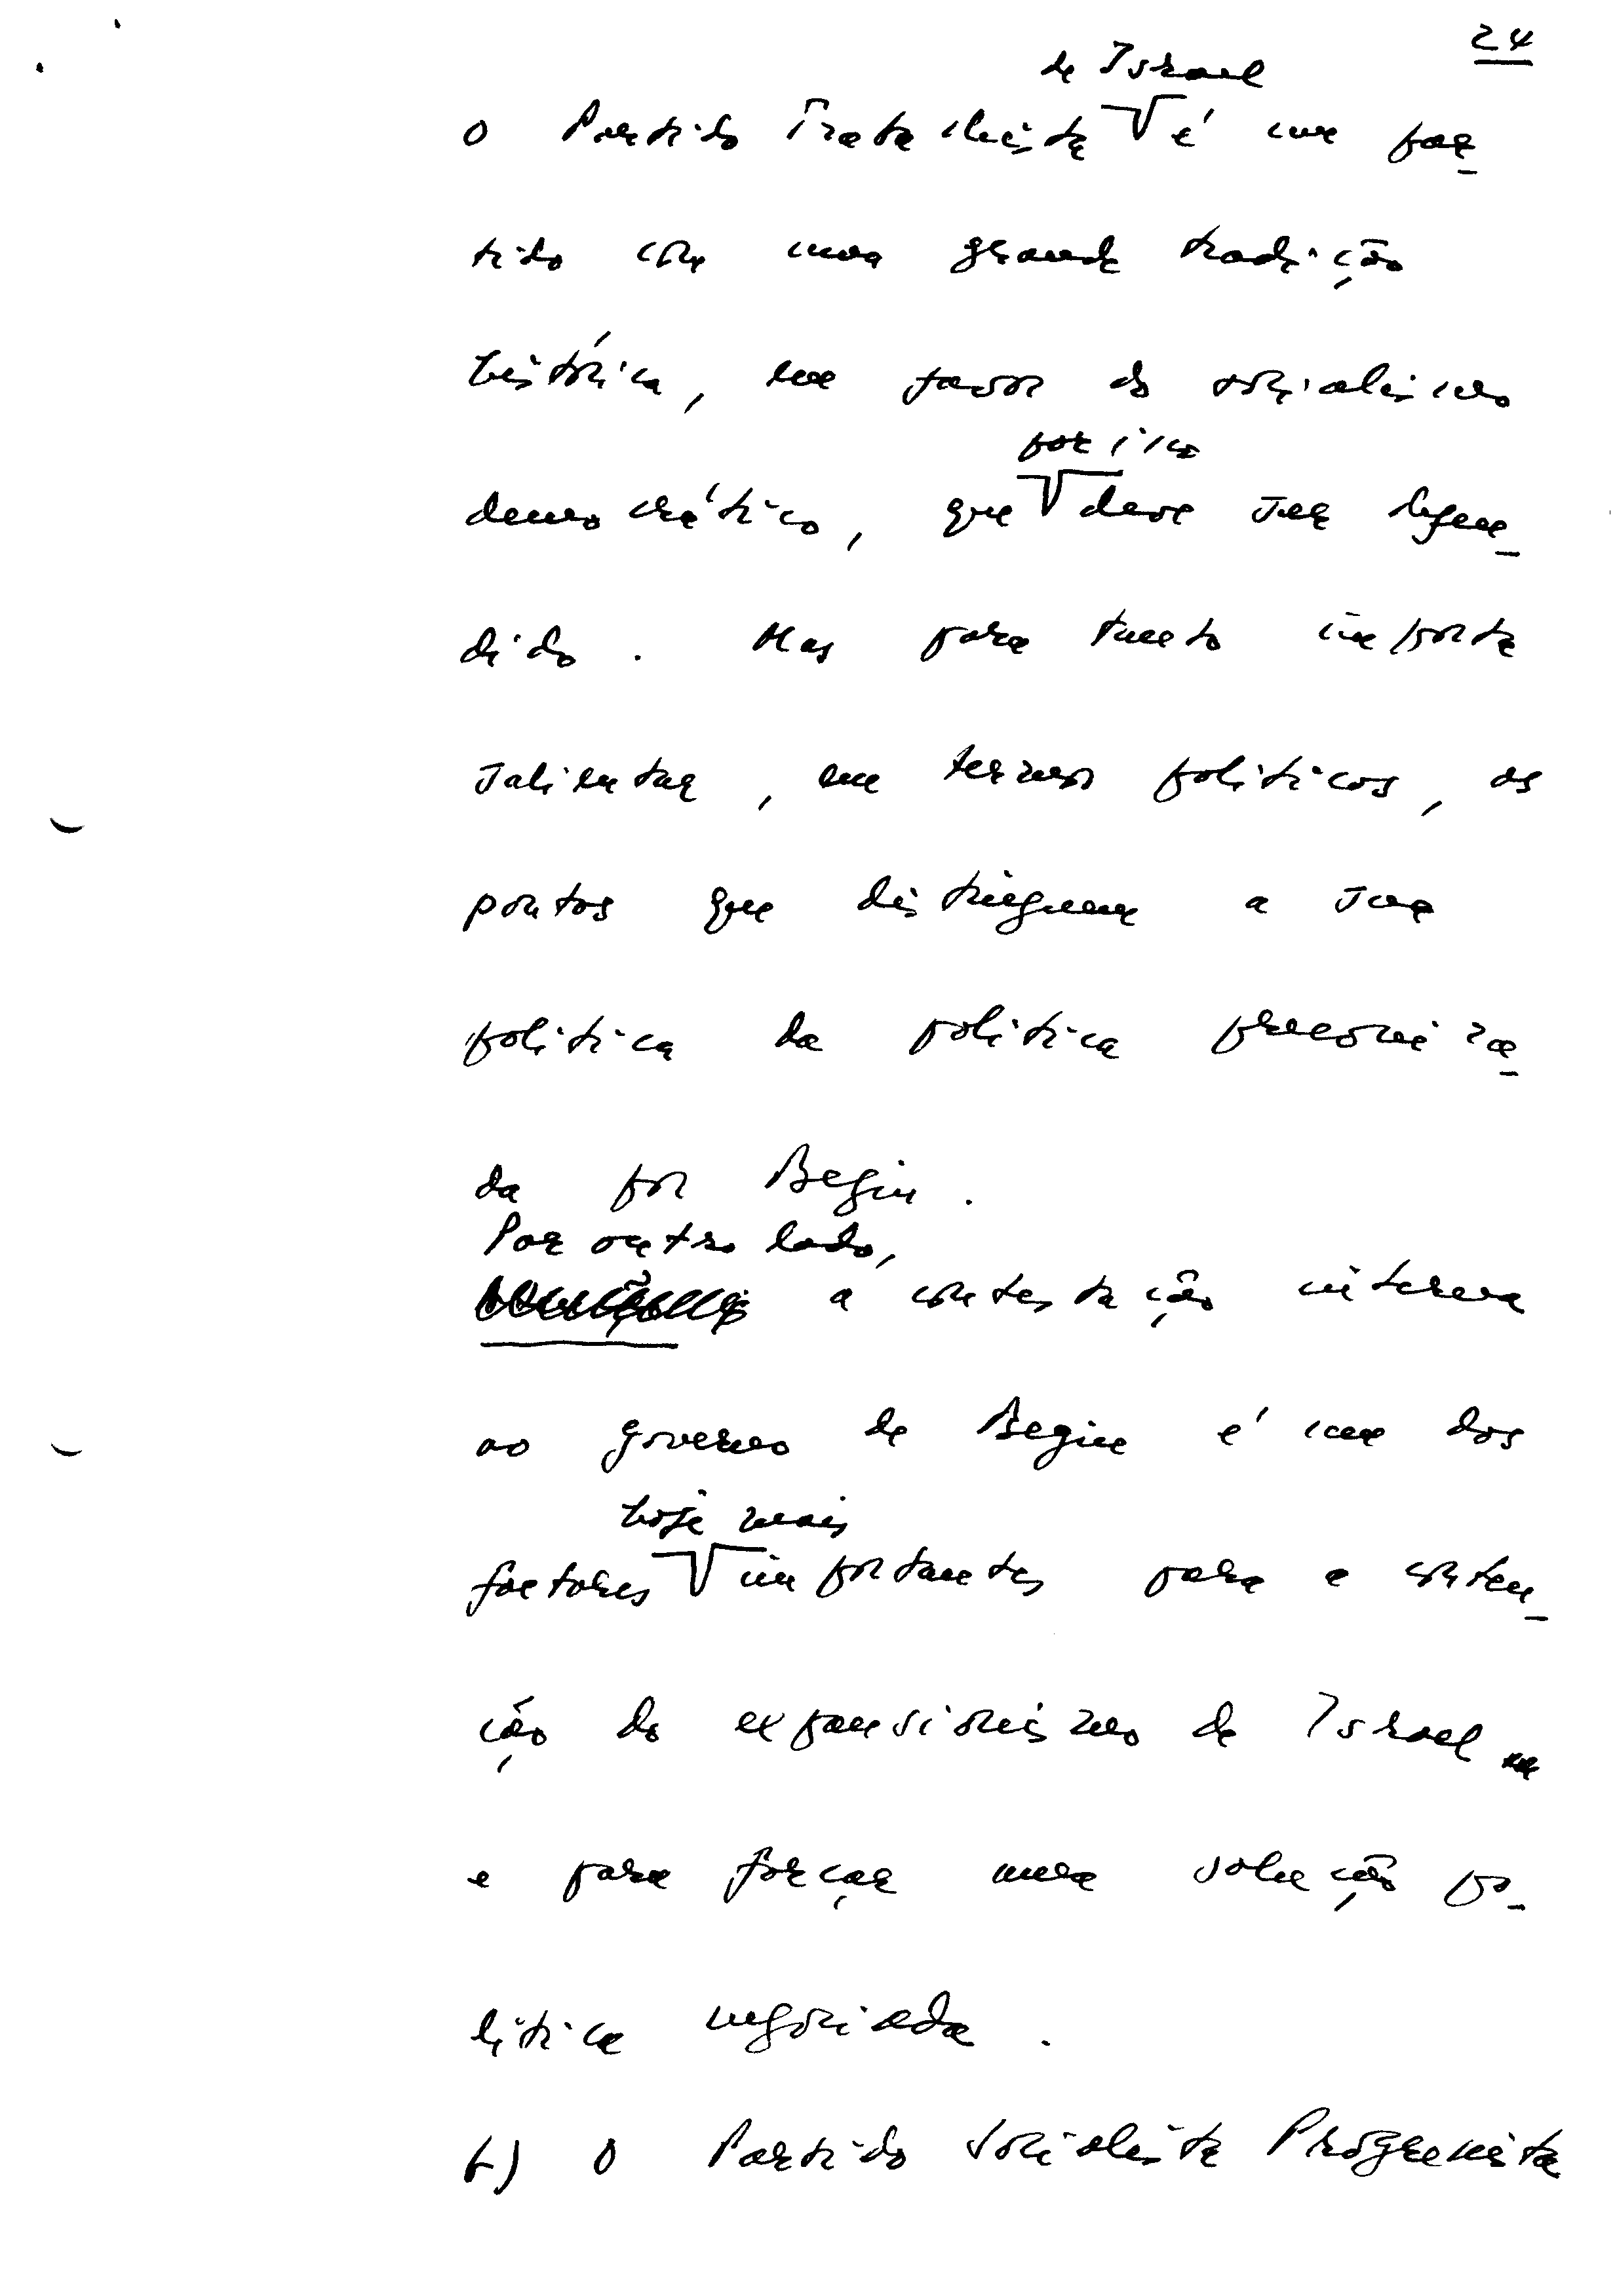 24
de Israel
o Partido Trabalhista é um par_
tido com uma grande tradição
histórica, em favor do socialismo
por isso
democrático, que deve ser defen_
dido. Mas para tanto importa
salientar, em termos políticos, os
pontos que distinguem a sua
política da política preconiza_
da por Begin.
Por outro lado,
a contestação interna
ao governo de Begin é um dos
hoje mais
factores importantes para a conten_
ção do expansionismo de Israel
e para forçar uma solução po_
lítica negociada.
b) O Partido Socialista Progressista